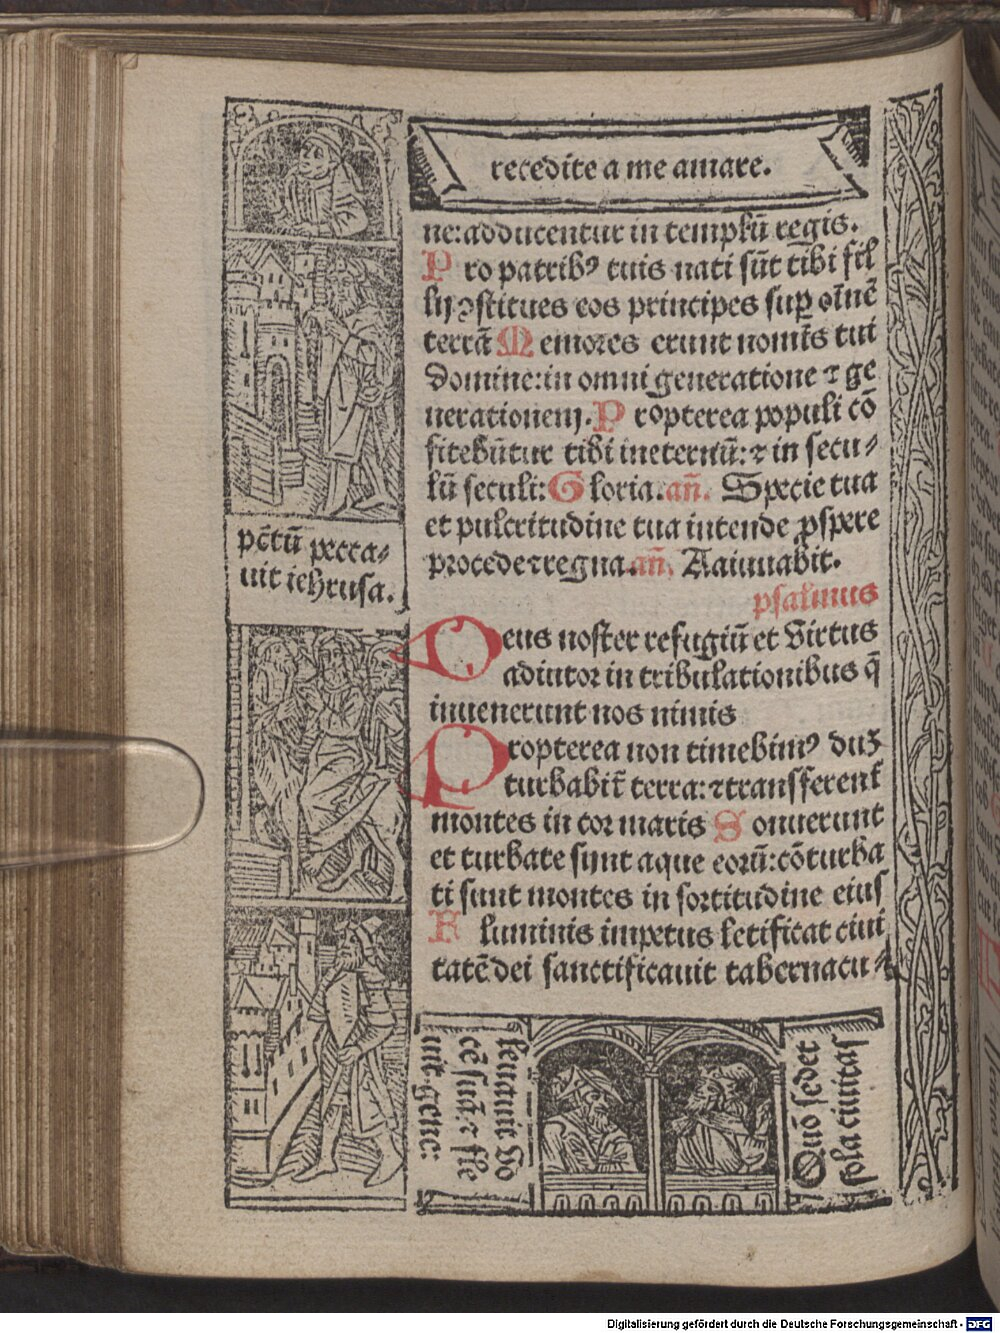 recedite a me amare.
ne: adducentur in templū regis.
P ro patribꝰ tuis nati sūt tibi fil
lij ꝯstitues eos principes suꝑ oīnē
terrā M emores erunt nomīs tui
domine: in omni generatione ⁊ ge
nerationem. P ropterea populi cō
fitebūtur tibi ineternū: ⁊ in secu-
lū seculi: G loria. añ. Specie tua
et pulcritudine tua intende ꝓspere
procede ⁊ regna. añ. Aaiuuabit.
psalmus
Deus noster refugiū et Virtus
adiutor in tribulationibus q̄
inuenerunt nos nimis
Propterea non timebimꝰ duꝫ
turbabit̄ terra: ⁊ transferent̄
montes in cor maris S onuerunt
et turbate sunt aque eorū: cōturba
ti sunt montes in fortitudine eius
F luminis impetus letificat ciui
tatē dei sanctificauit tabernacu-
pc̄tū pecca-
uit iehrusa.
leuauit Vo
cē suā: ⁊ fle
uit. gene:
Quō sedet
sola ciuitas
Digitalisierung gefördert durch die Deutsche Forschungsgemeinschaft - DFG